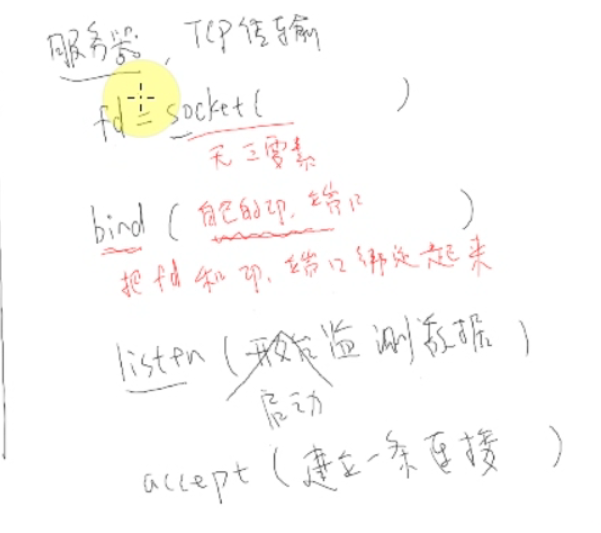 服务器, TCP传输
fd = socket( )
无三要素
bind ( 自己的IP, 端口 )
把 fd 和 IP, 端口绑定起来
listen ( 开始监测数据 )
启动
accept ( 建立一条连接 )